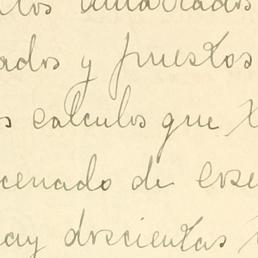 ados y puestos
s calculos que
cenado de
ay doscientas